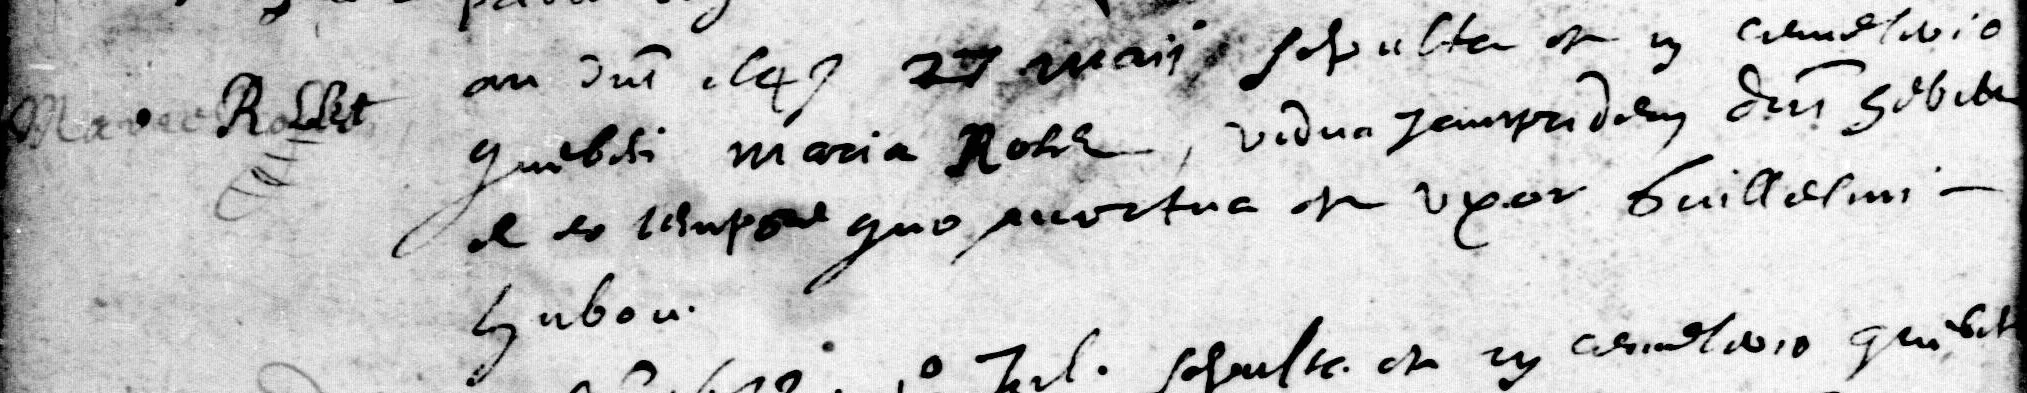 Marie Rollet
an dni 1649 27 maij sepulta est in cemeterio
quebeci maria Rolet, vidua jampridem dni hebert
et eo tempore quo mortua est uxor Guillelmi
hubou.
Jul. sepulta est in cemeterio quebec